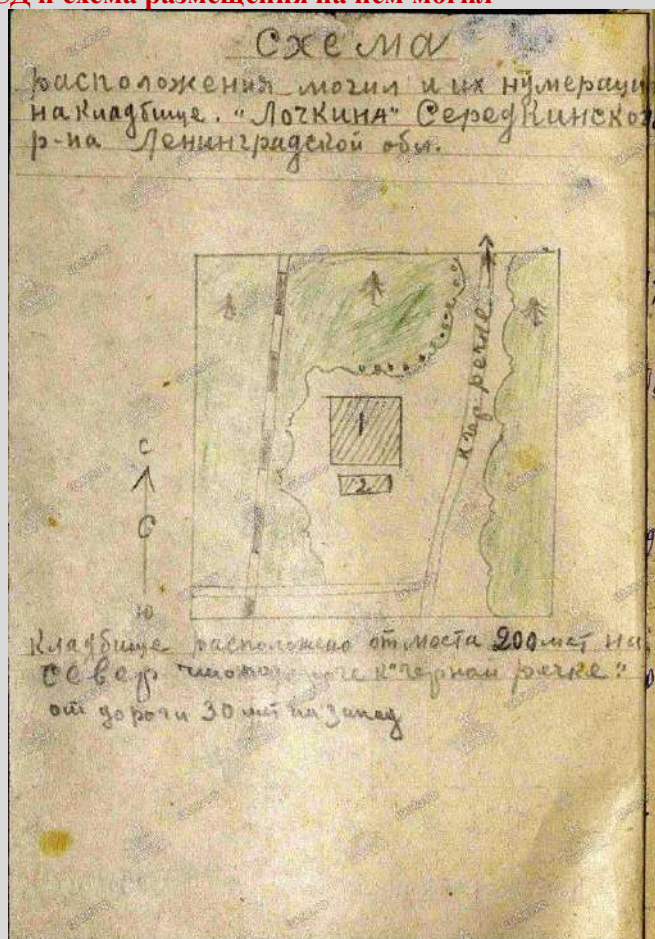 и схема размещения на нем могил
Схема
расположения могил и их нумераци
на кладбище. "Лочкина" Середкинского
р-на Ленинградской обл.
к чер речке
1
2
С
Ю
Кладбище расположено от моста 200 мет на
север
дороге к "черной речке"
от дороги 30 мет на запад